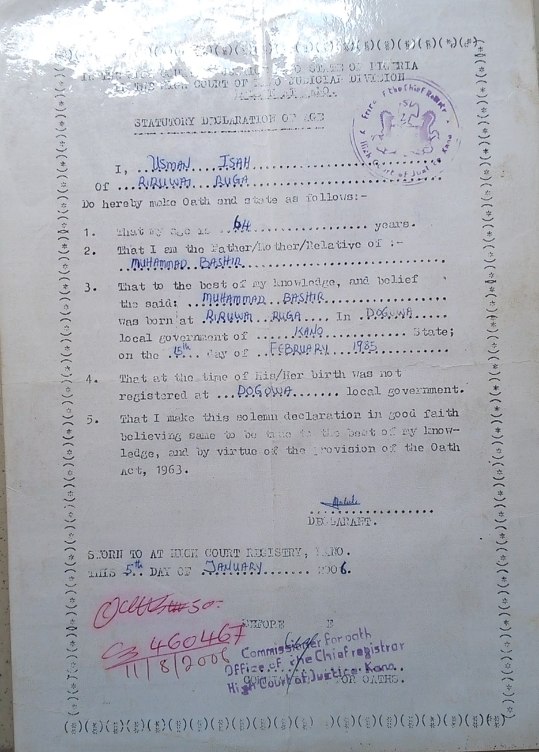 STATE OF NIGERIA
HIGH COURT OF JUDICIAL DIVISION
STATUTORY DECLARATION OF AGE
Office of the Chief Registrar
High Court of Justice Kano
I, USMAN ISAH
Of RIRUWAI RUGA
Do hereby make Oath and state as follows:-
1. That my age is 64 years.
2. That I am the Father/Mother/Relative of :-
MUHAMMAD BASHIR
3. That to the best of my knowledge, and belief
the said: MUHAMMAD BASHIR
was born at RIRUWAI RUGA In DOGUWA
local government of KANO State;
on the 15th day of FEBRUARY 1985
4. That at the time of His/Her birth was not
registered at DOGOWA local government.
5. That I make this solemn declaration in good faith
believing same to be true to the best of my know-
ledge, and by virtue of the provision of the Oath
Act, 1963.
DECLARANT.
SWORN TO AT HIGH COURT REGISTRY, KANO.
THIS 5th DAY OF JANUARY 2006.
50:
460467
11/8/2006
BEFORE
Commissioner for oath
Office of the Chief registrar
High Court of Justice Kano
FOR OATHS.